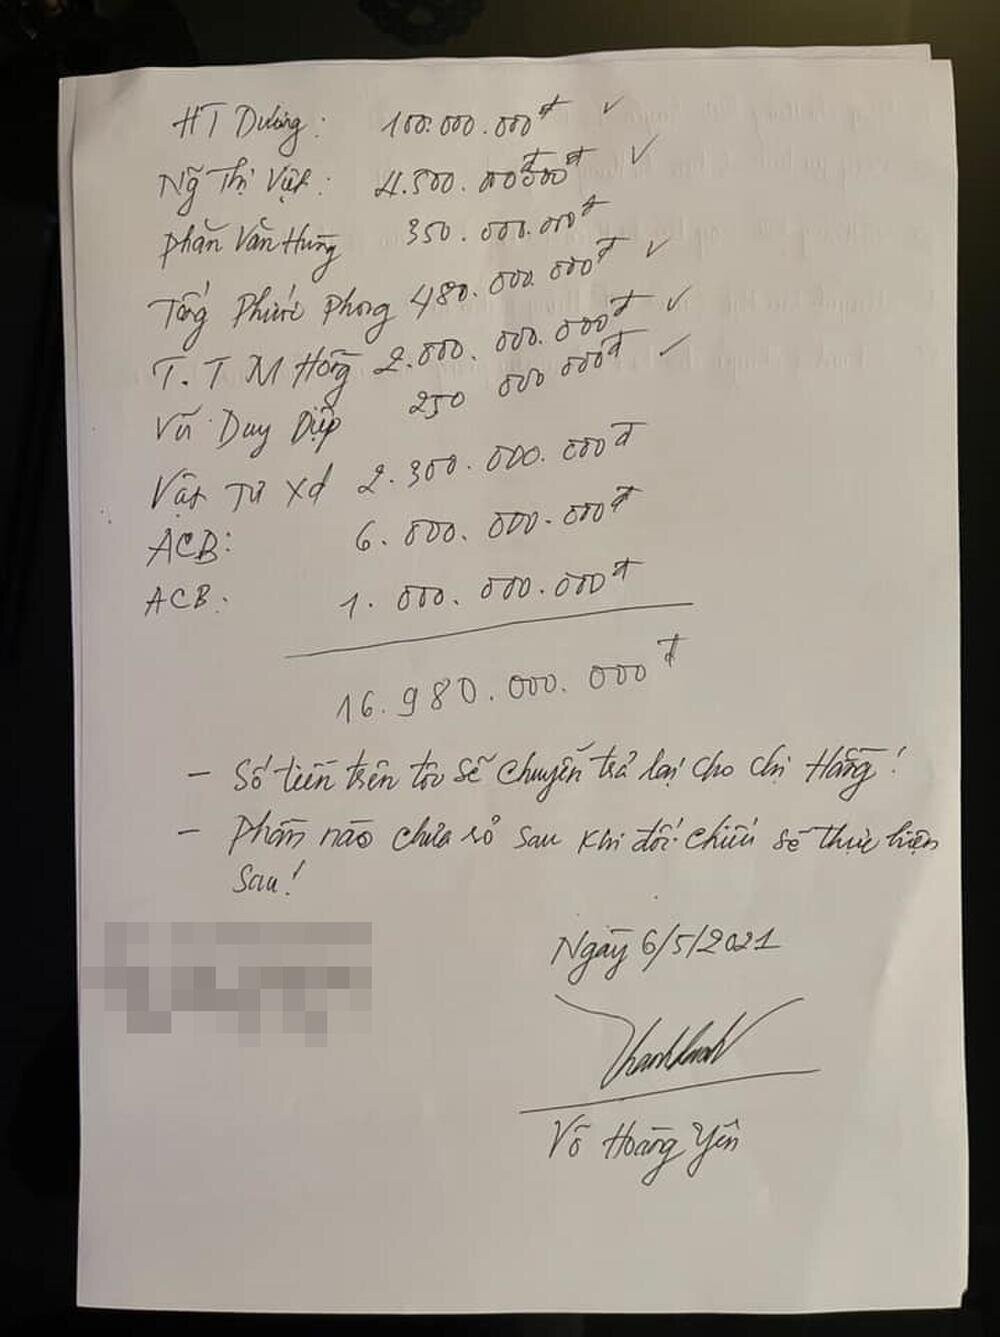 HT Dương: 100.000.000đ ✓
Ng Thị Việt: 4.500.000.000đ ✓
Phan Văn Hưng 350.000.000đ
Tống Phước Phong 480.000.000đ ✓
T.T M Hồng 2.000.000.000đ ✓
Vũ Duy Diệp 250 000 000đ ✓
Vật Tư Xd 2.300.000.000đ
ACB: 6.000.000.000đ
ACB. 1.000.000.000đ
16.980.000.000đ
- Số tiền trên tôi sẽ chuyển trả lại cho chị Hằng!
- Phần nào chưa rỏ sau khi đối chiếu sẽ thực hiện
sau!
Ngày 6/5/2021
Võ Hoàng Yên